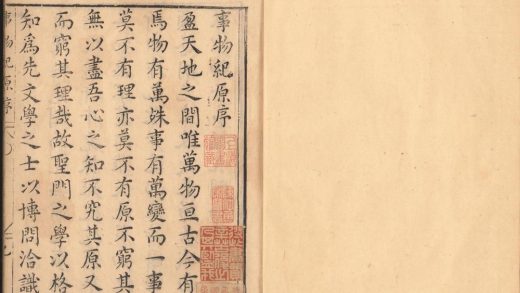 事物紀原序
盈天地之間唯萬物亘古今有
焉物有萬殊事有萬變而一事
莫不有理亦莫不有原不窮其
無以盡吾心之知不究其原又
而窮其理哉故聖門之學以格
知爲先文學之士以博問洽識
事物紀原序